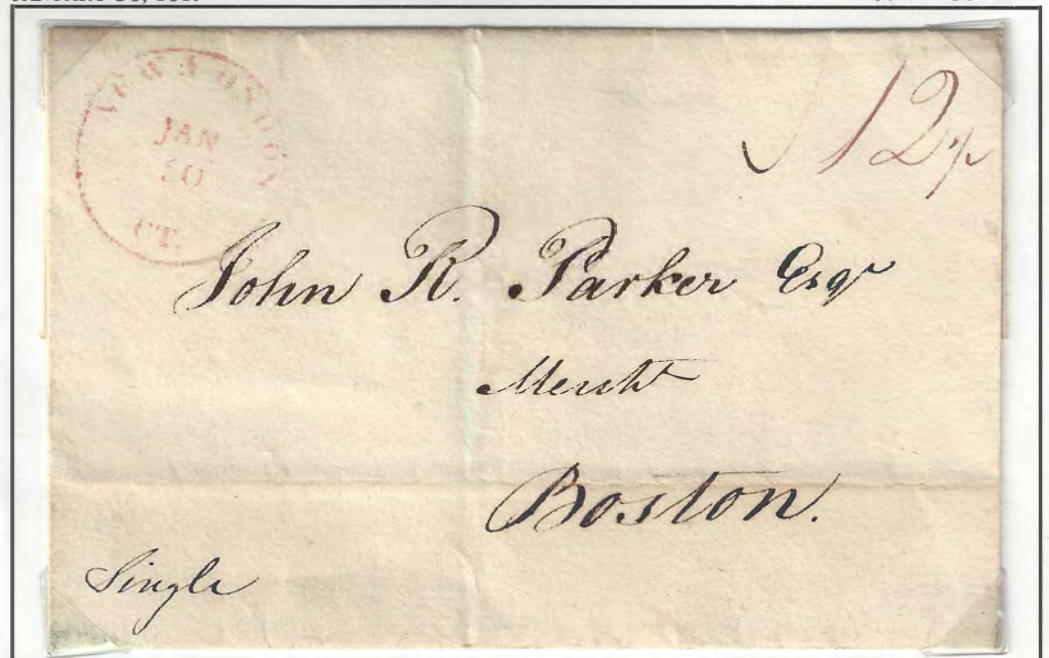 JANUARY 30,
NEW LONDON
JAN
30
CT.
12½
John R. Parker Esqr
Mercht
Boston.
Single